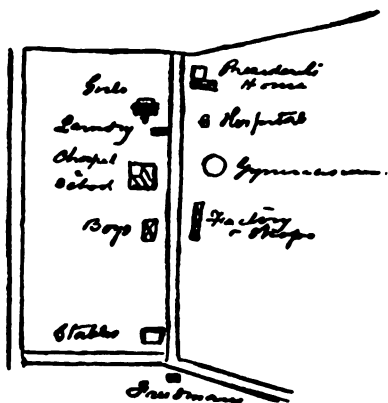 Girls
Laundry
Chapel
&
School
Boys
Stables
President's
Home
Hospital
Gymnasium.
Factory
& Shops